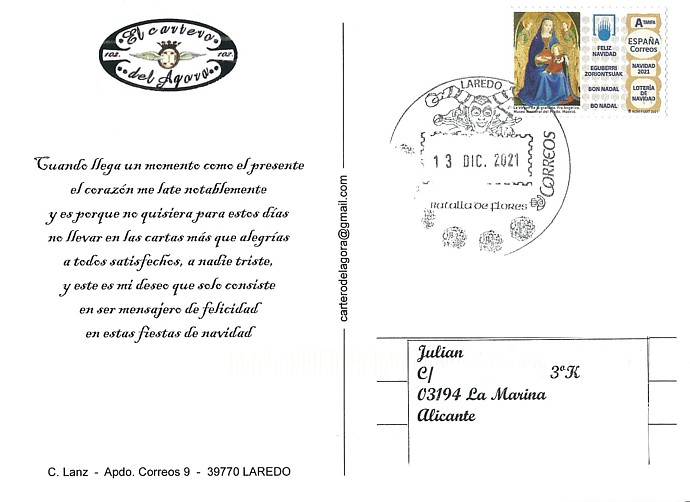 El cartero
102. 102.
del Agora
Cuando llega un momento como el presente
el corazón me late notablemente
y es porque no quisiera para estos días
no llevar en las cartas más que alegrías
a todos satisfechos, a nadie triste,
y este es mi deseo que solo consiste
en ser mensajero de felicidad
en estas fiestas de navidad
C. Lanz - Apdo. Correos 9 - 39770 LAREDO
carterodelagora@gmail.com
LAREDO
13 DIC. 2021
CORREOS
Batalla de flores
A TARIFA
ESPAÑA
Correos
FELIZ
NAVIDAD
EGUBERRI
ZORIONTSUAK
BON NADAL
BO NADAL
NAVIDAD
2021
LOTERÍA
DE
NAVIDAD
Museo Nacional del Prado. Madrid.
Julian
C/ 3ºK
03194 La Marina
Alicante